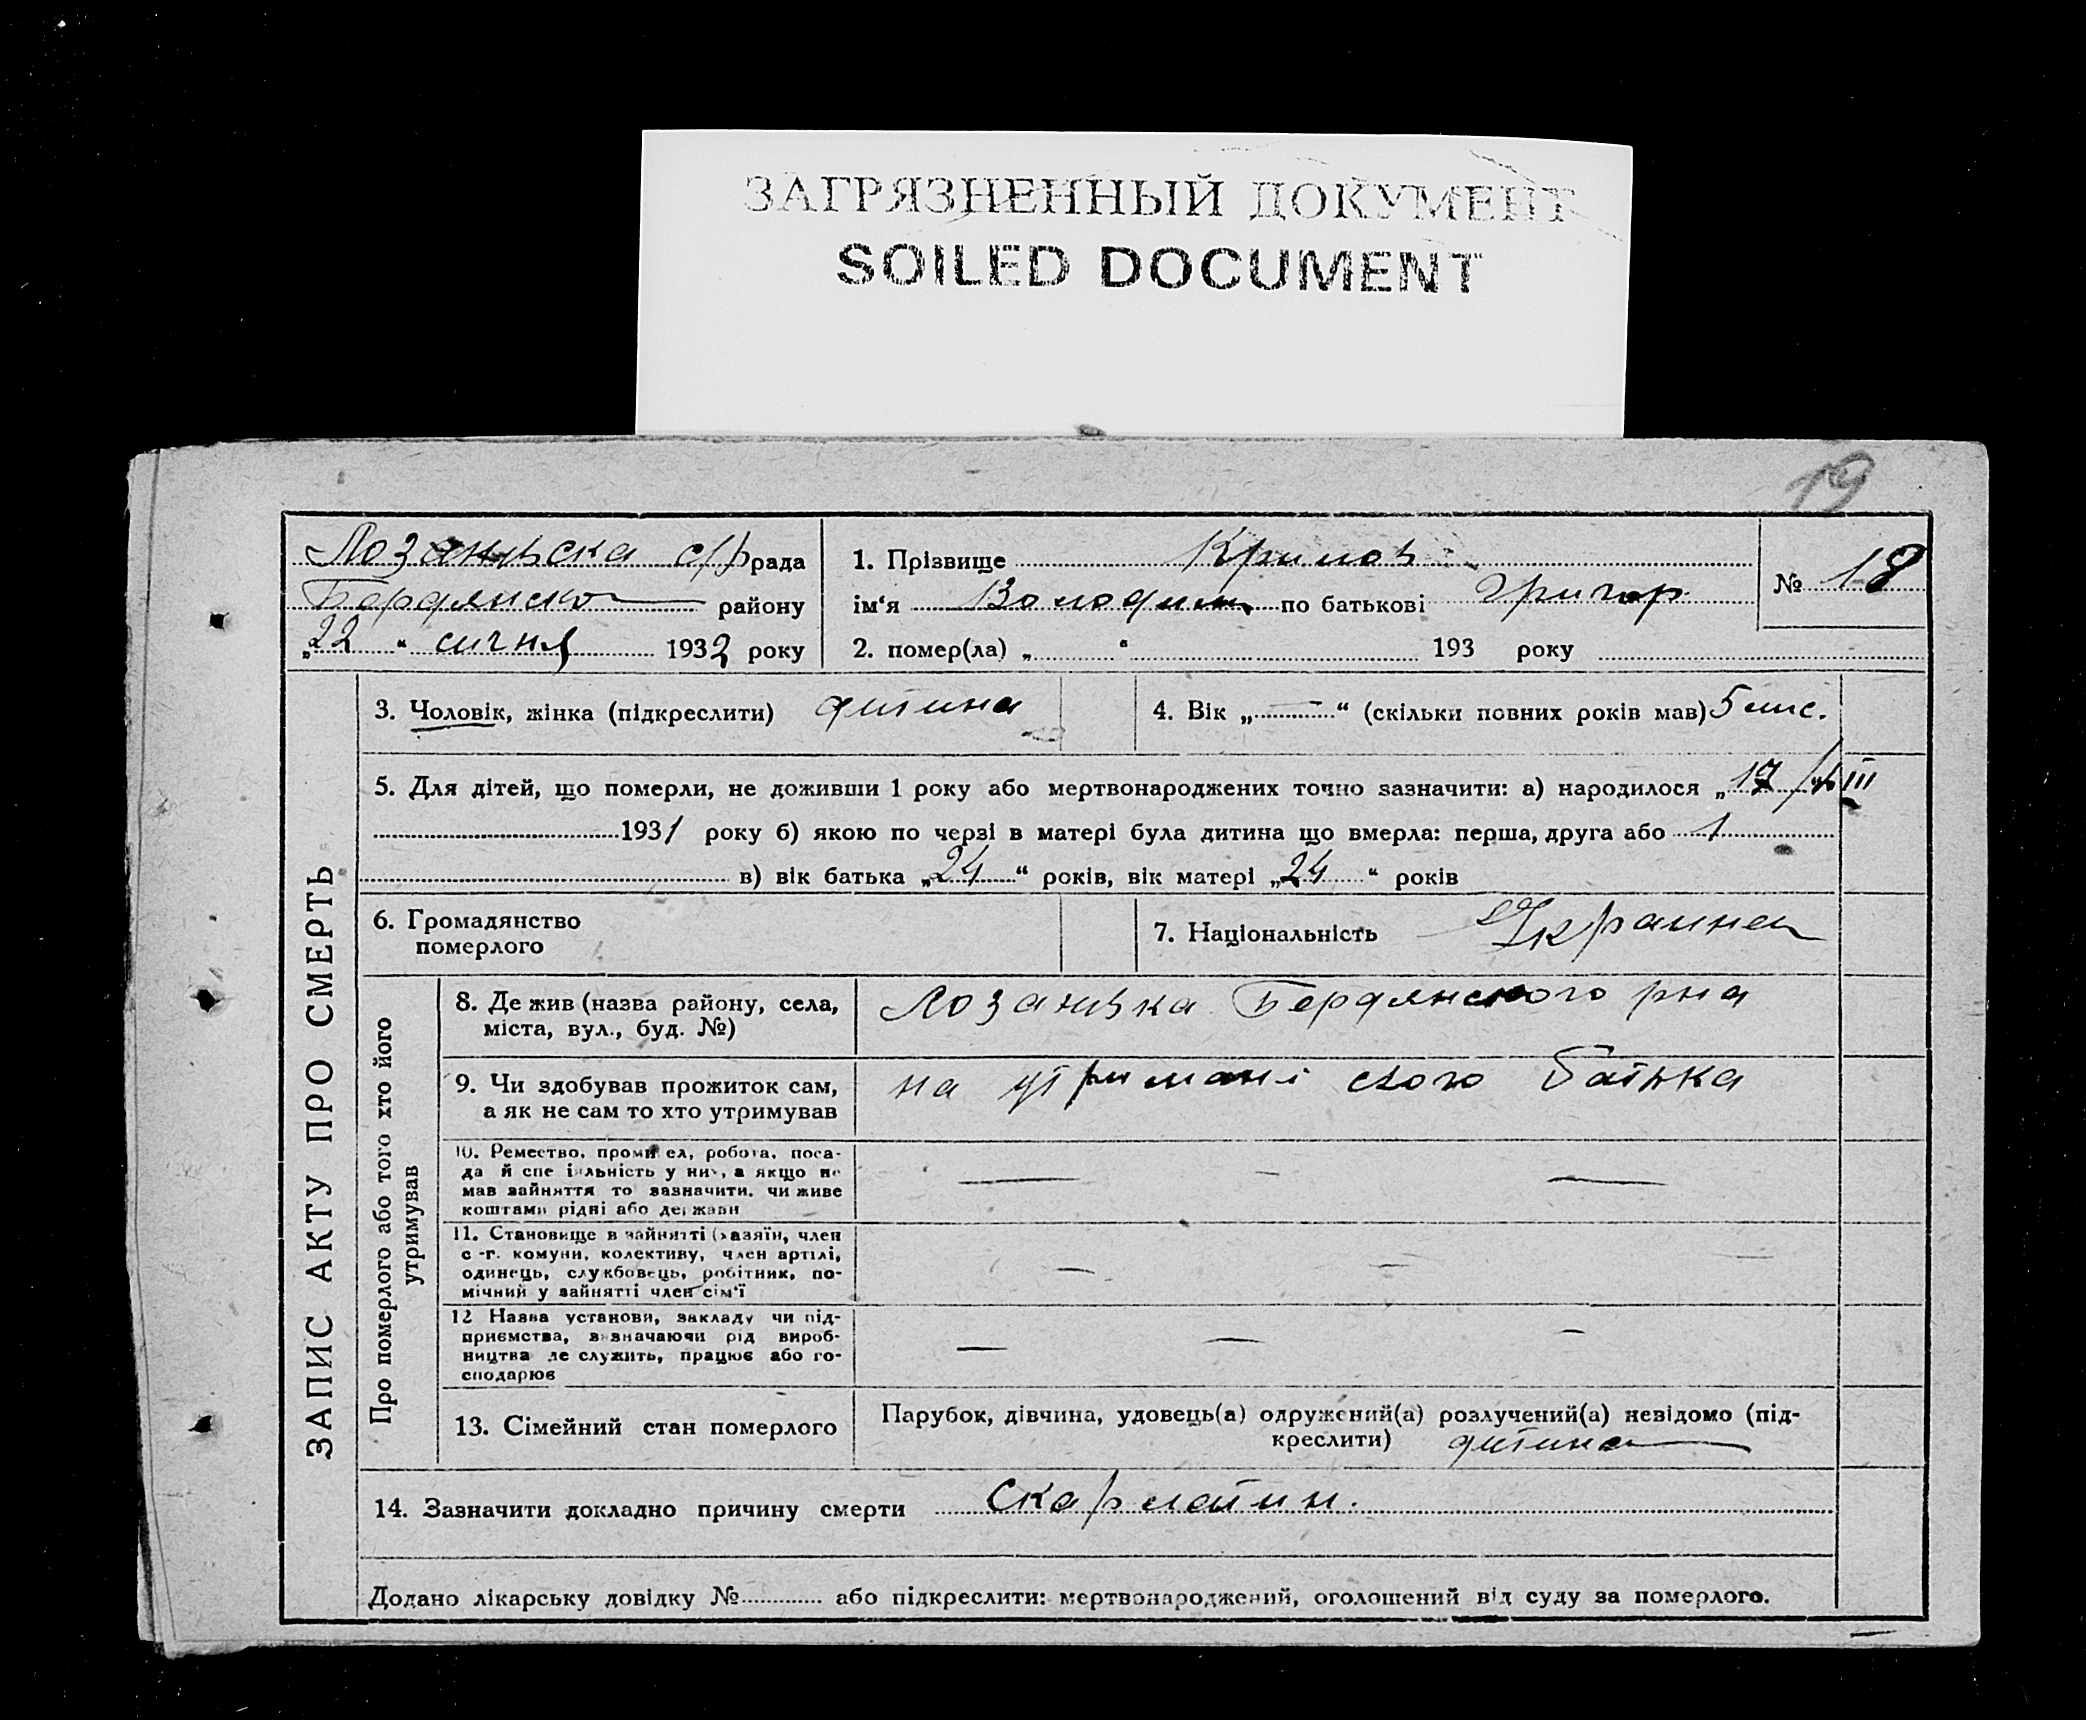 ЗАГРЯЗНЕННЫЙ ДОКУМЕНТ
SOILED DOCUMENT
19
Лозанівска с/р рада
Бердянско району
„22 “ січня 1932 року
1. Прізвище Кримов
ім‘я Володим по батькові Григор.
№ 18
2. помер(ла) „ “ 193 року
ЗАПИС АКТУ ПРО СМЕРТЬ
3. Чоловік, жінка (підкреслити) дитина
4. Вік „ — “ (скільки повних років мав) 5 міс.
5. Для дітей, що померли, не доживши 1 року або мертвонароджених точно зазначити: а) народилося „ 17 / VIII
1931 року б) якою по черзі в матері була дитина що вмерла: перша, друга або 1
в) вік батька „24 “ років, вік матері „24 “ років
6. Громадянство
померлого
7. Національність Украинец
Про померлого або того хто його
утримував
8. Де жив (назва району, села,
міста, вул., буд. №)
Лозанівка Бердянского рна
9. Чи здобував прожиток сам,
а як не сам то хто утримував
на утримані свого батька
10. Ремество, промисел, робота, поса-
да й спеціяльність у них, а якщо не
мав зайняття то зазначити, чи живе
коштами рідні або держави
— — —
11. Становище в зайнятті (хазяїн, член
с.-г. комуни, колективу, член артілі,
одинець, службовець, робітник, по-
мічний у зайнятті член сім‘ї
— — —
12 Назва установи, закладу чи під-
приємства, визначаючи рід вироб-
ництва де служить, працює або го-
сподарює
— — —
13. Сімейний стан померлого
Парубок, дівчина, удовець(а) одружений(а) розлучений(а) невідомо (під-
креслити) дитина
14. Зазначити докладно причину смерти Скарлатин.
Додано лікарську довідку № або підкреслити: мертвонароджений, оголошений від суду за померлого.